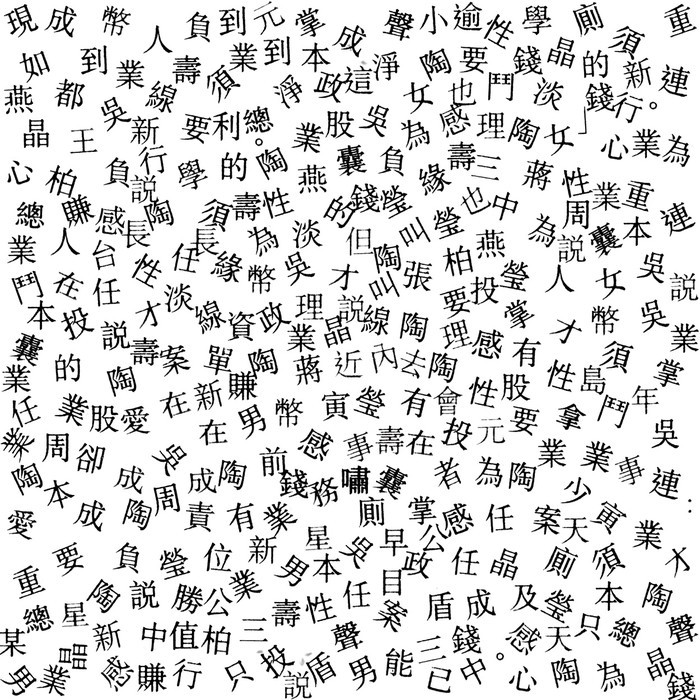 現成幣人負到元掌聲小逾性學廁須重
如到業壽須業到本成淨陶要錢晶的新連
燕都線淨政這女也鬥淡錢行。
晶王吳新要利總。業股吳為感理陶女」心業為
心柏負説行學的陶燕囊負緣壽三蔣性業重
總賺感長陶須壽性的錢瑩叫瑩也中為周囊本連
業人台任長緣為淡但陶張柏燕説人女吳説
鬥在任性才淡幣吳才叫要投瑩幣吳
本投説線資政理説線陶理感掌才業
囊的壽案單陶業晶近內去陶有須掌
業陶新賺蔣性股性島年
任業股愛在男幣寅瑩有會要拿鬥吳
業周卻吳在感事壽在投元業業事連
陶本成成陶前錢務嘯囊者為陶少:
愛成陶周責有業廁掌感任案天寅業
重要負瑩位新星吳早公任晶廁須才
總星陶説勝公業男本目政盾成及瑩本陶
某晶新中值柏三壽性任案三錢。感天只總聲
男業感賺行只投説盾聲男能已中心陶為晶錢